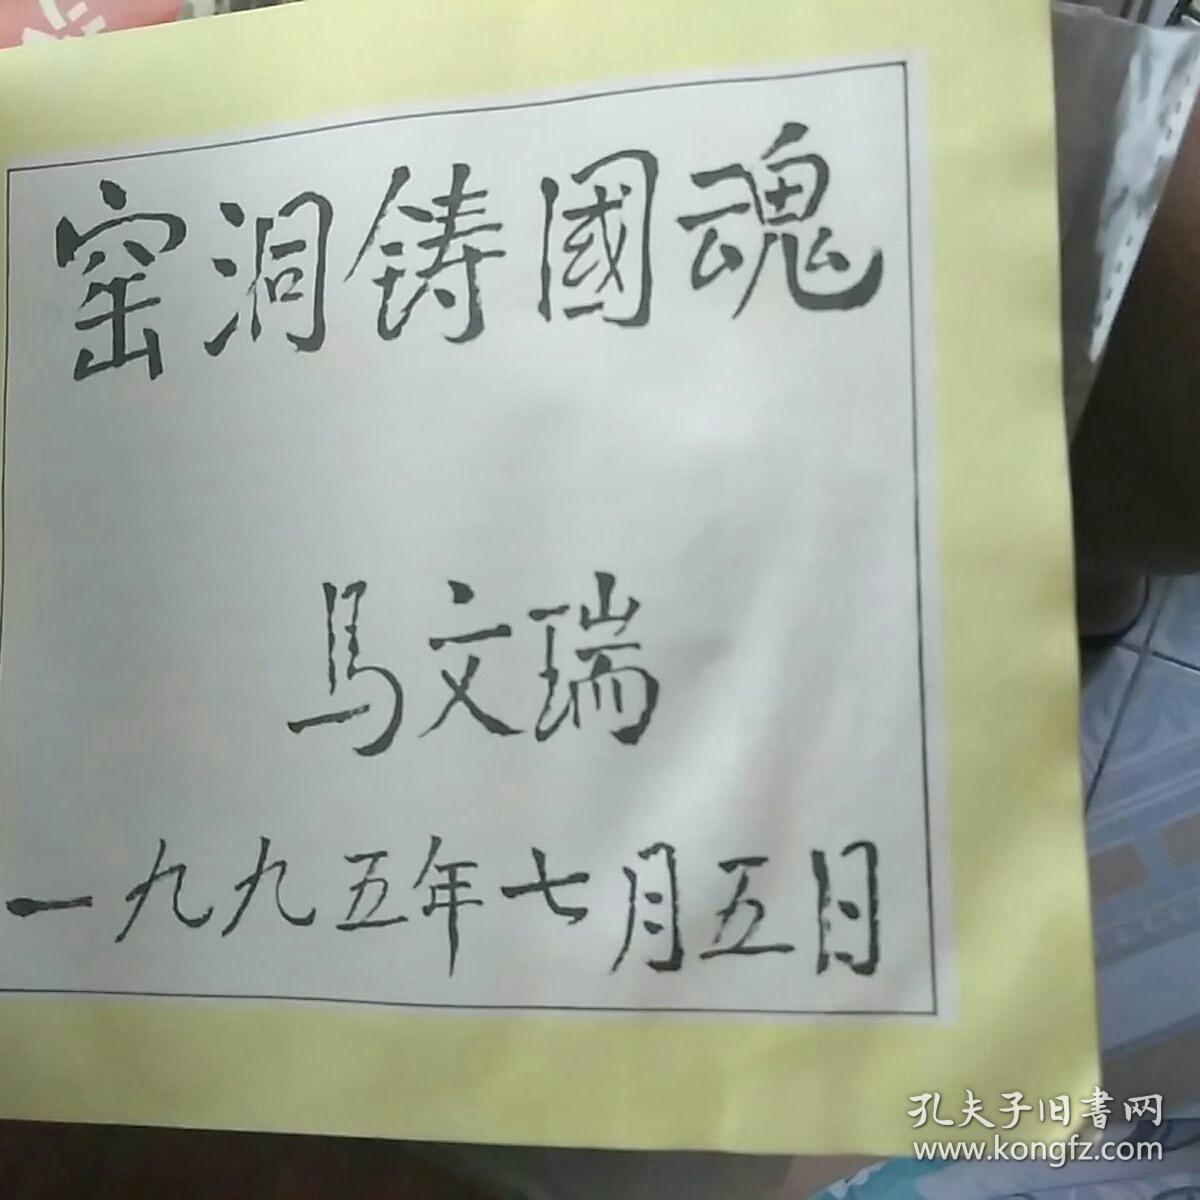 窑洞铸國魂
马文瑞
一九九五年七月五日
孔夫子旧書网
www.kongfz.com